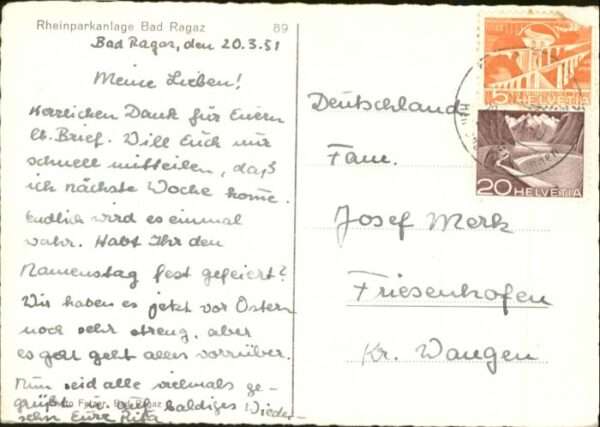 Rheinparkanlage Bad Ragaz 89
Bad Ragaz, den 20.3.51
Meine Lieben!
Herzlichen Dank für Euern
lb. Brief. Will Euch nur
schnell mitteilen, daß
ich nächste Woche kome.
Endlich wird es einmal
wahr. Habt Ihr den
Namenstag fest gefeiert?
Wir haben es jetzt vor Ostern
noch sehr streng, aber
es geht alles vorrüber.
Nun seid alle vielmals ge-
grüßt auf baldiges Wieder-
sehn Eure Rita
Deutschland
Fam.
Josef Merk
Friesenhofen
Kr. Wangen
15 HELVETIA
20 HELVETIA